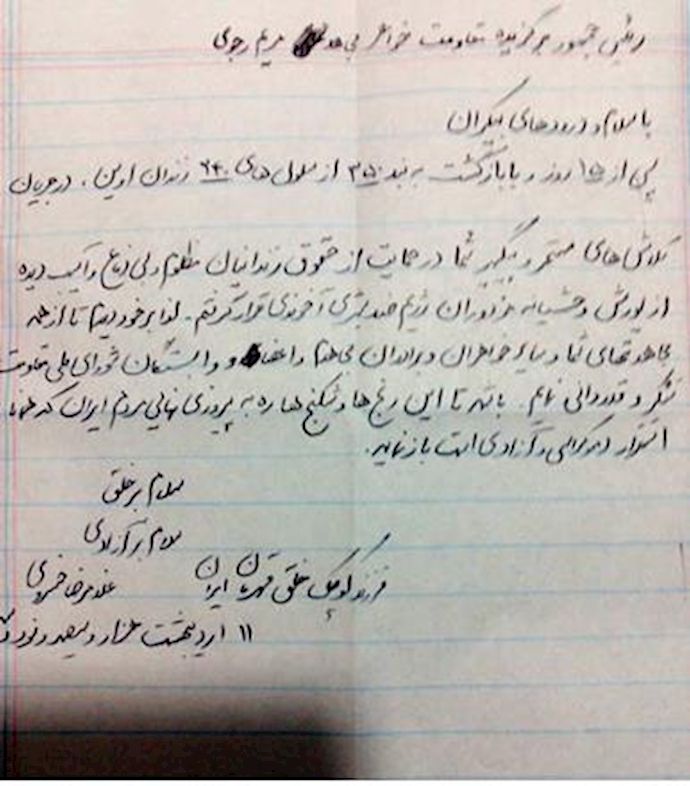 رئیس جمهور برگزیده مقاومت خواهر مجاهد مریم رجوی
با سلام و درودهای بیکران
پس از ۱۵ روز و با بازگشت به بند ۳۵۰ از سلول های ۲۴۰ زندان اوین، در جریان
تلاش های مستمر و پیگیر شما در حمایت از حقوق زندانیان مظلوم و بی دفاع و آسیب دیده
از یورش وحشیانه مزدوران رژیم ضد بشری آخوندی قرار گرفتم. لذا بر خود دیدم تا از همه
مجاهدتهای شما و سایر خواهران و برادران مجاهدم و اعضا و وابستگان شورای ملی مقاومت
تشکر و قدردانی نمایم. باشد تا این رنج ها و شکنج ها ره به پیروزی نهایی مردم ایران که همانا
استقرار دموکراسی و آزادی است باز نماید.
سلام بر خلق
سلام بر آزادی
فرزند کوچک خلق قهرمان ایران غلامرضا خسروی
۱۱ اردیبهشت هزار و سیصد و نود و